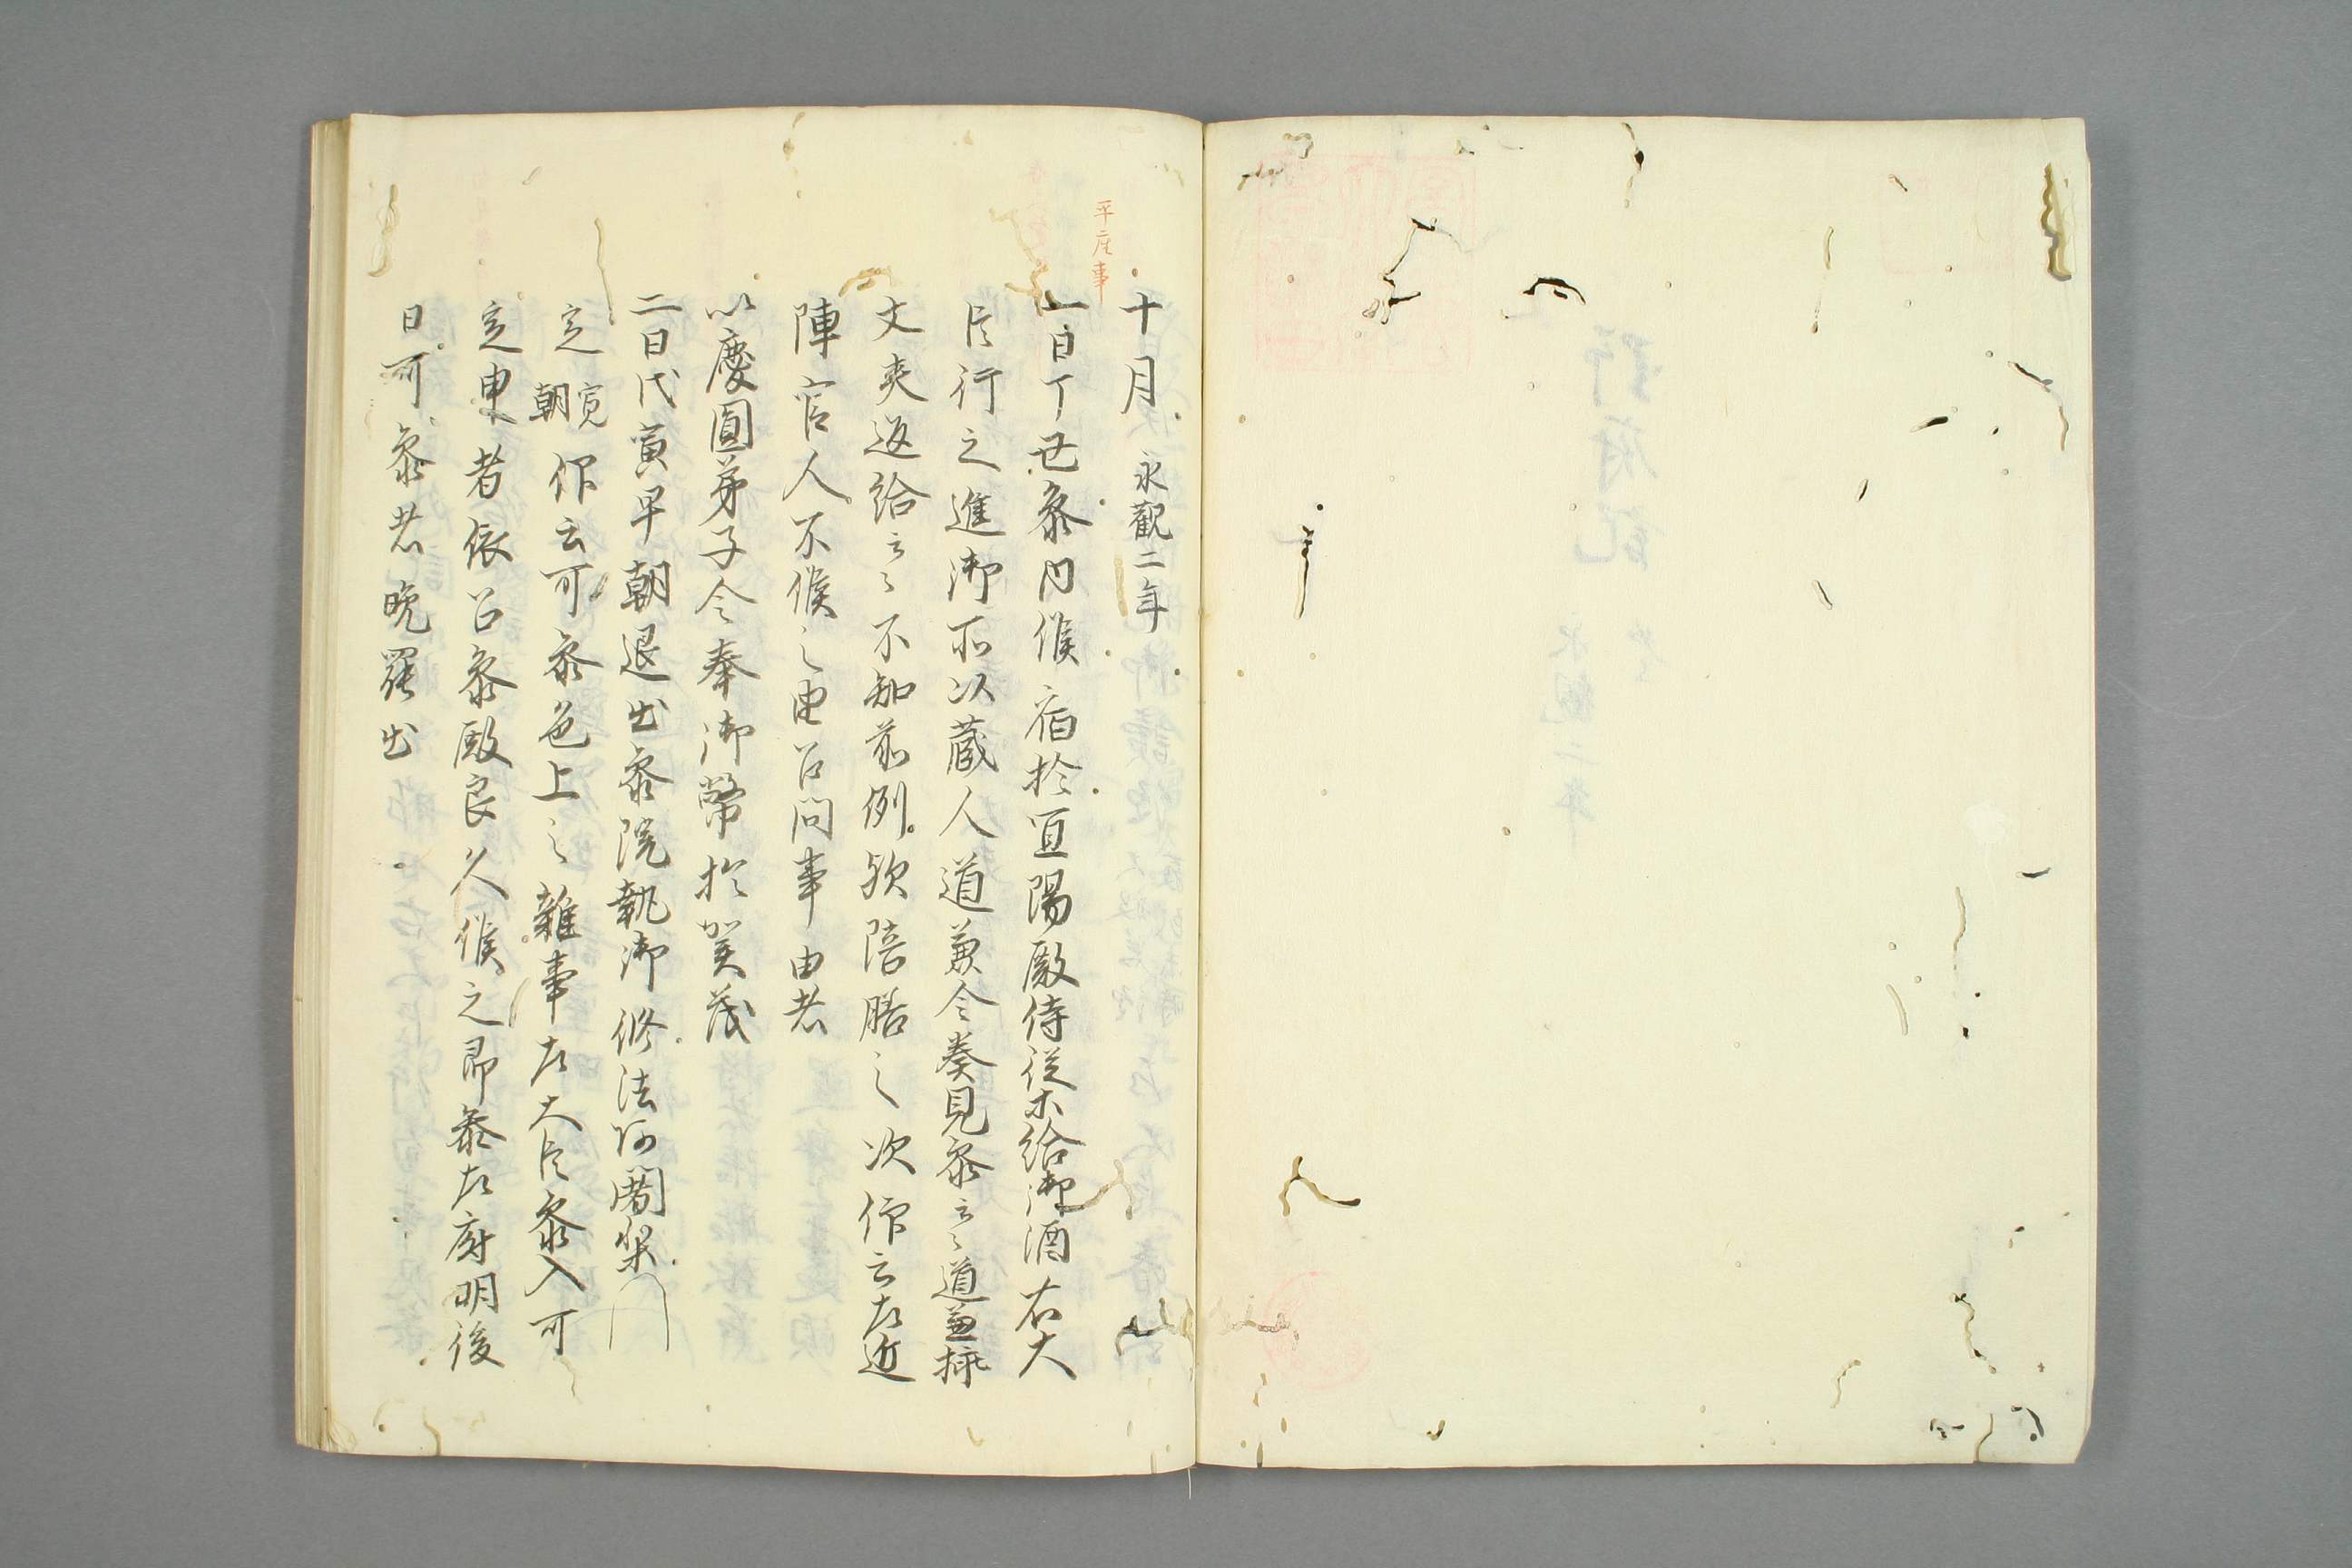 十月 永觀二年
平座事
一日丁丑參内候宿於宜陽殿侍從等給御酒右大
臣行之進御所以蔵人道兼令奏見參云々道兼挿
文夾返給云々不知前例欤陪膳之次仰云左近
陣官人不候之由召問事由者
以慶圓弟子令奉御幣於賀茂
二日戊寅早朝退出參院執御修法阿闍梨
定 寛朝 仰云可參色上之雜事左大臣參入可
定申者依召參殿良久候之即參左府明後
日可參者晩罷出